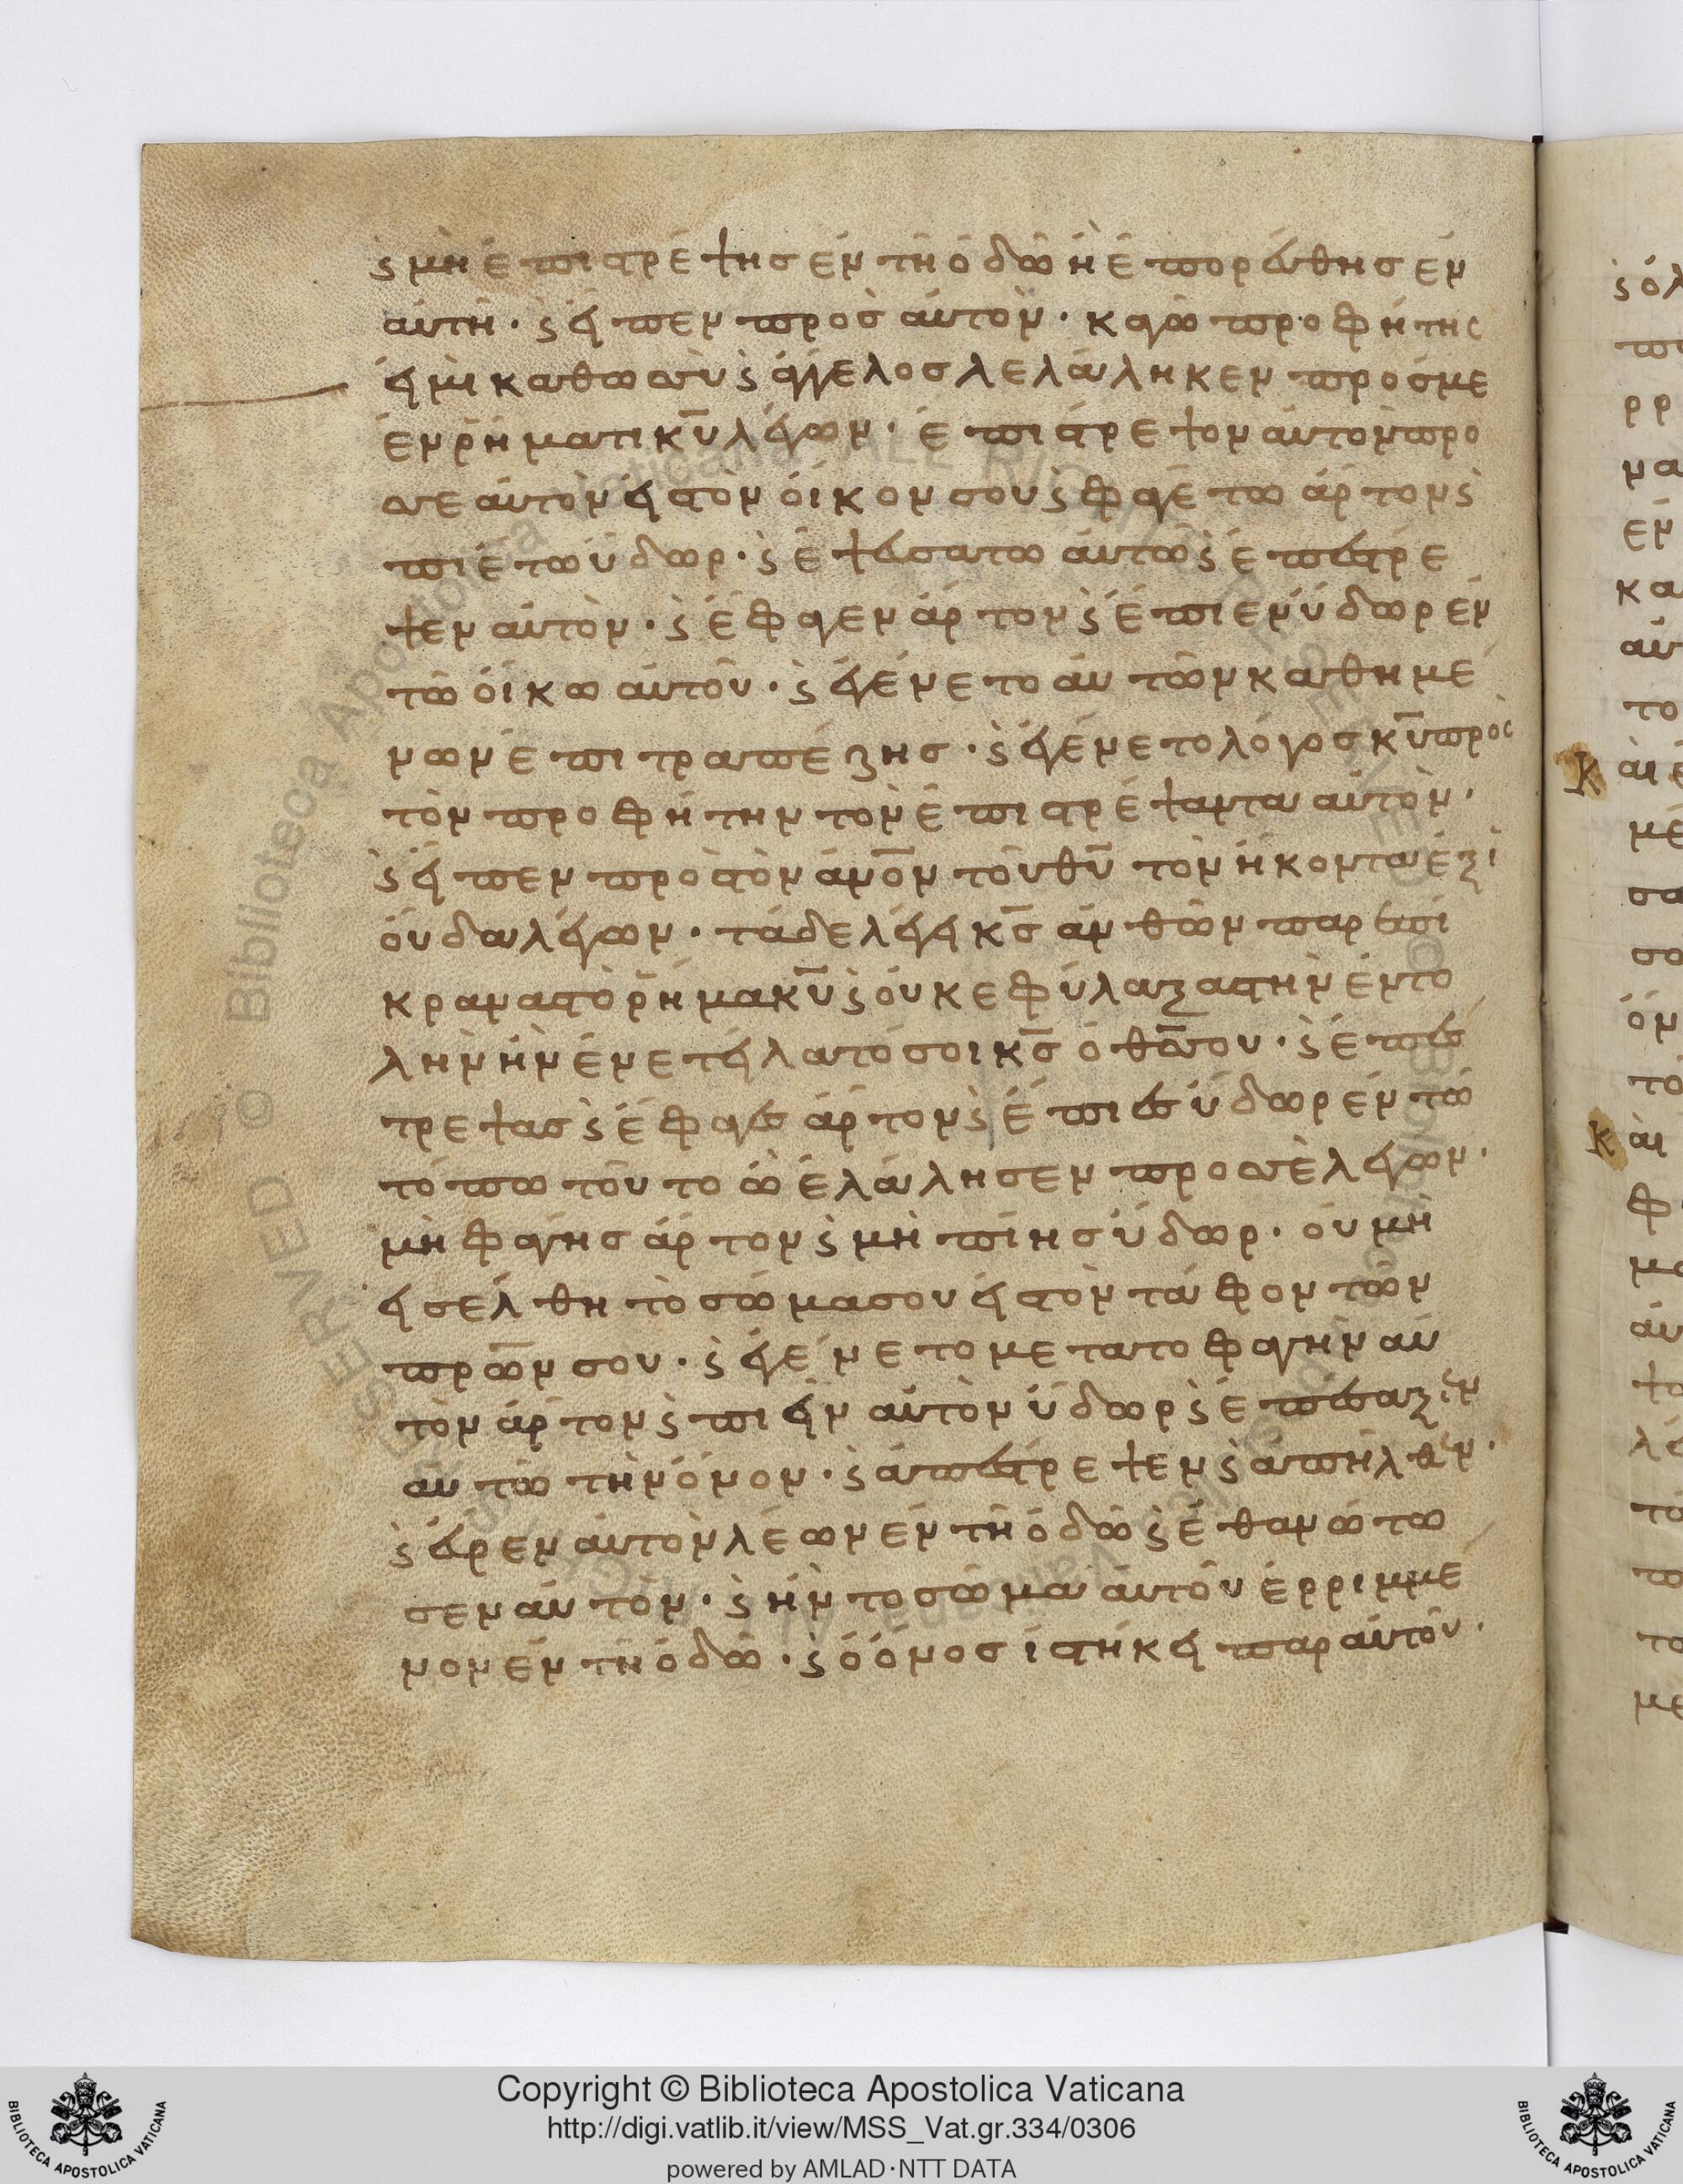 ϛ μὴ ἐπιστρέψησ ἐν τῆ ὁδῶ ἧ ἐπορεύθησ ἐν
αὐτῆ· ϛ εἶπεν προσ αὐτὸν· καγὼ προφήτης
εἰμὶ καθὼσ σὺ ϛ ἄγγελοσ λελάληκεν πρόσ με
ἐν ῥήματι κ̅υ̅ λέγων· ἐπιστρεψον αὐτον προ
σὲ αὐτον εἰστὸν οἶκον σου ϛ φαγέτω ἄρτον ϛ
πιέτω ὕδωρ· ϛ ἐψεύσατο αὐτῶ ϛ ἐπέστρε
ψεν αὐτὸν· ϛ ἔφαγεν ἄρτον ϛ ἔπιεν ὕδωρ ἐν
τῶ οἴκω αὐτοῦ· ϛ ἐγένετο αὐτῶν καθημέ
νων ἐπι τραπέζησ· ϛ ἐγένετο λόγοσ κ̅υ̅ προς
τὸν προφήτην τὸν ἐπιστρέψαντα αὐτὸν·
ϛ εἶπεν πρὸστὸν ἀ̅ν̅ο̅ν̅ τοῦ θ̅υ̅ τὸν ἥκοντα ἐξ ἰ
ούδα λέγων· τάδε λέγει κ̅σ̅ ἀνθῶν παρεπί
κρανασ τὸ ῥῆμα κ̅υ̅ ϛ οὐκ εφύλαξασ τὴν ἐντο
λὴν ἣν ἐνετείλατό σοι κ̅σ̅ ὁ θ̅σ̅ σου· ϛ ἐπέσ
τρεψασ ϛ ἔφαγεσ ἄρτον ϛ ἔπιεσ ὕδωρ ἐν τῶ
τόπω τούτο ὧ ἐλάλησεν προσ σὲ λέγων·
μὴ φάγησ ἄρτον ϛ μὴ πίησ ὕδωρ· οὐ μὴ
εἰσέλθη τὸ σῶμα σου εἰστὸν τάφον τῶν
π̅ρ̅ω̅ν̅ σου· ϛ ἐγένετο μετατο φαγὴν αὐ
τὸν ἄρτον ϛ πιεῖν αὐτὸν ὕδωρ ϛ ἐπέσαξεν
αυτῶ τὴν ὄνον· ϛ ἀπέστρεψεν ϛ ἀπῆλθεν·
ϛ εὗρεν αὐτὸν λέων ἐν τῆ ὁδῶ ϛ ἐθανάτω
σεν αὐτὸν· ϛ ἦν το σῶμα αὐτοῦ ἐρριμμέ
νον ἐν τῆ ὁδῶ· ϛ ὁ ὄνοσ ἱστήκει παρ αὐτοῦ·
Copyright © Biblioteca Apostolica Vaticana
http://digi.vatlib.it/view/MSS_Vat.gr.334/0306
powered by AMLAD·NTT DATA